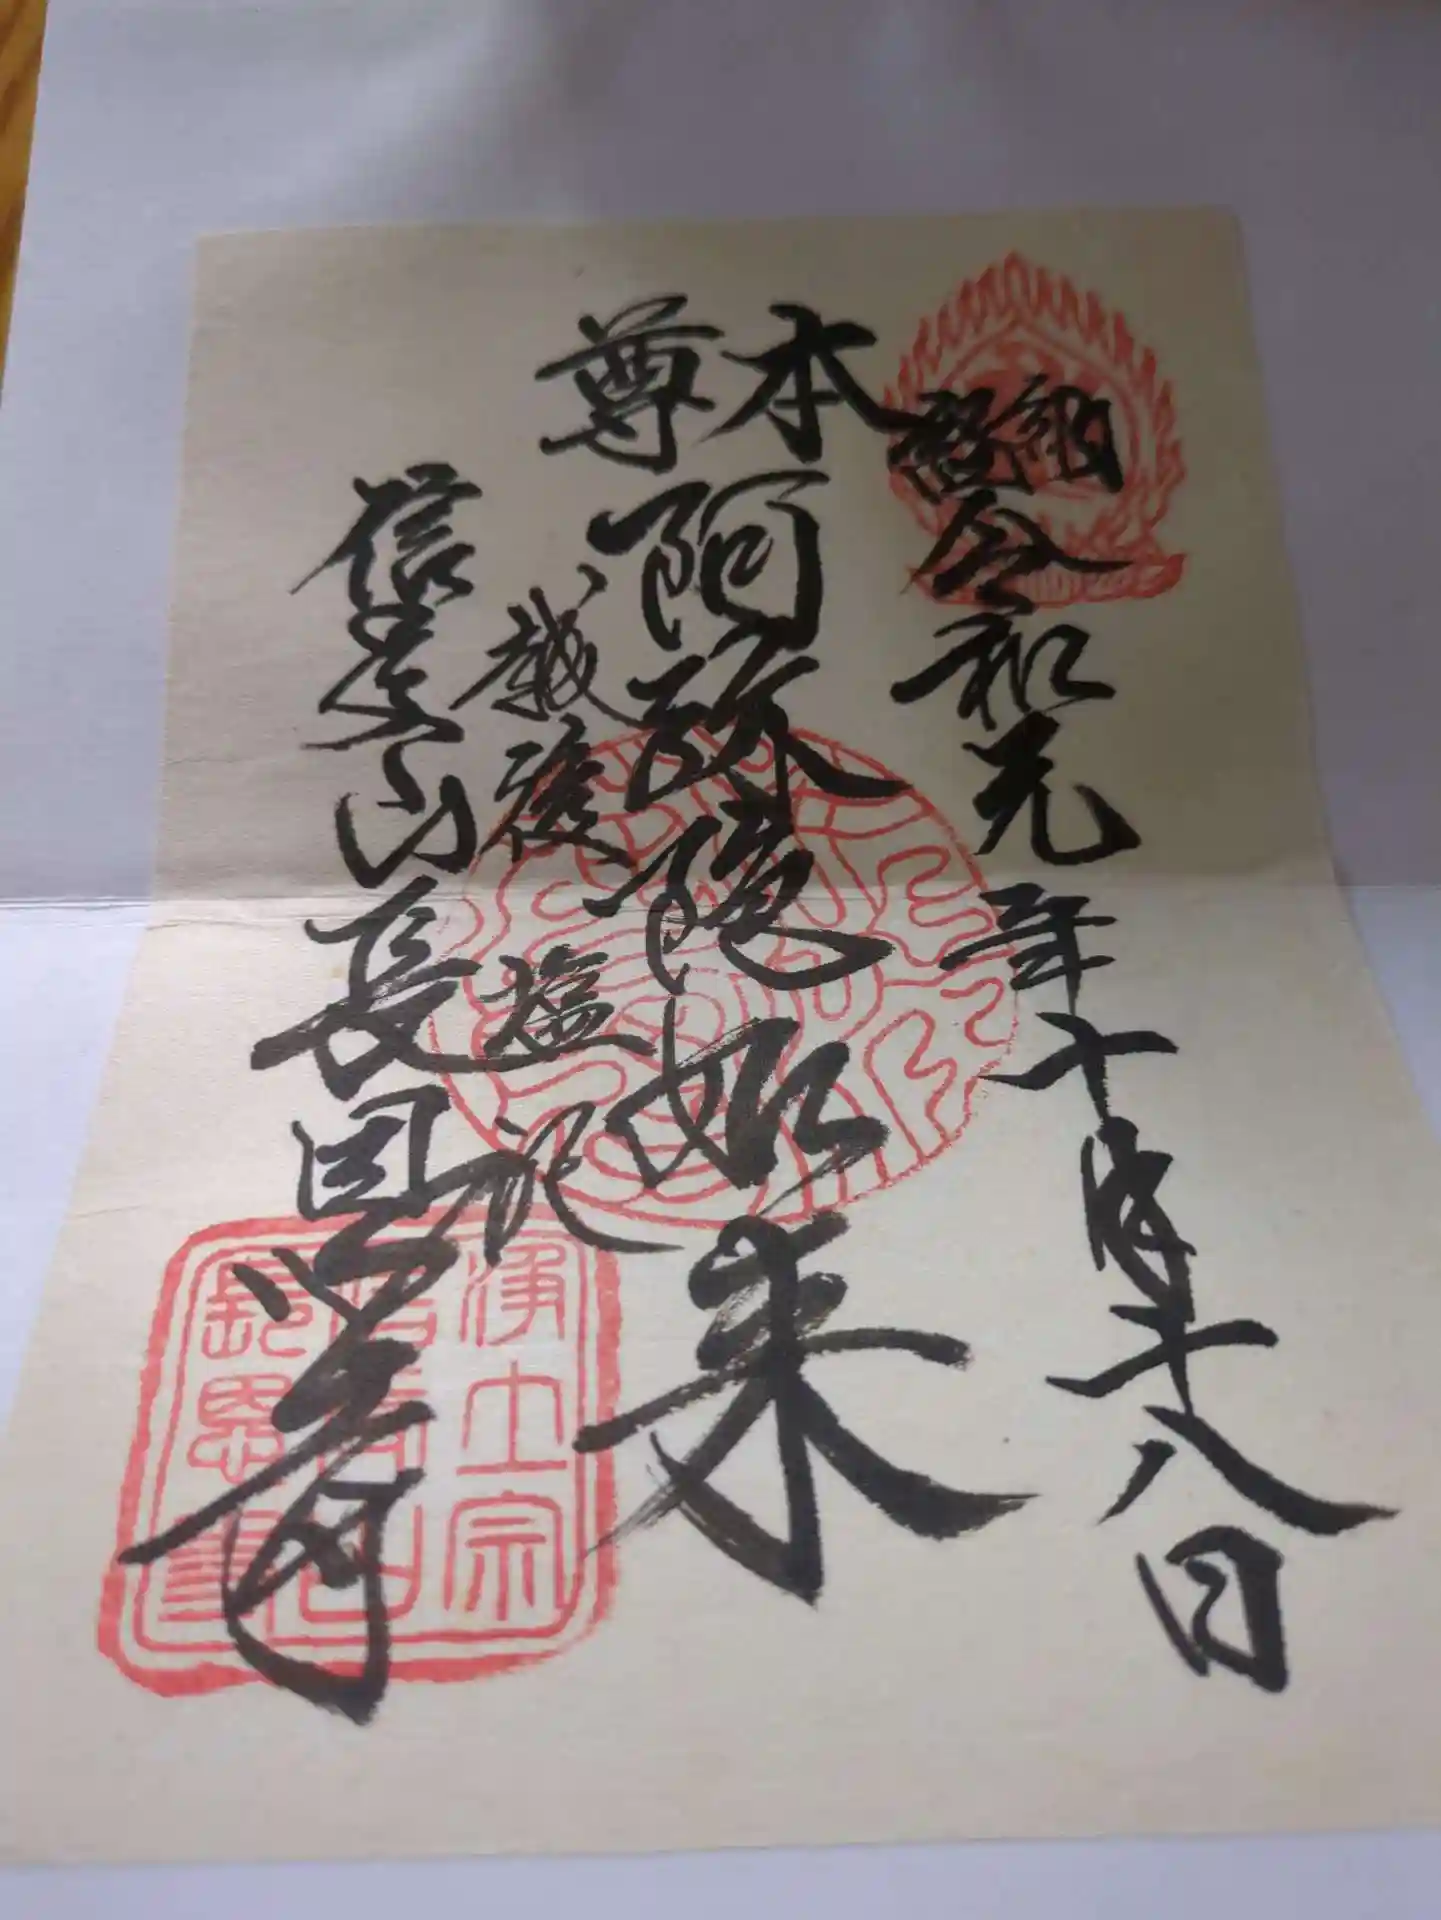 納経
令和元年十月十八日
本尊
阿弥陀如来
越後塩沢
信山長恩寺
浄土宗
信山
長恩寺